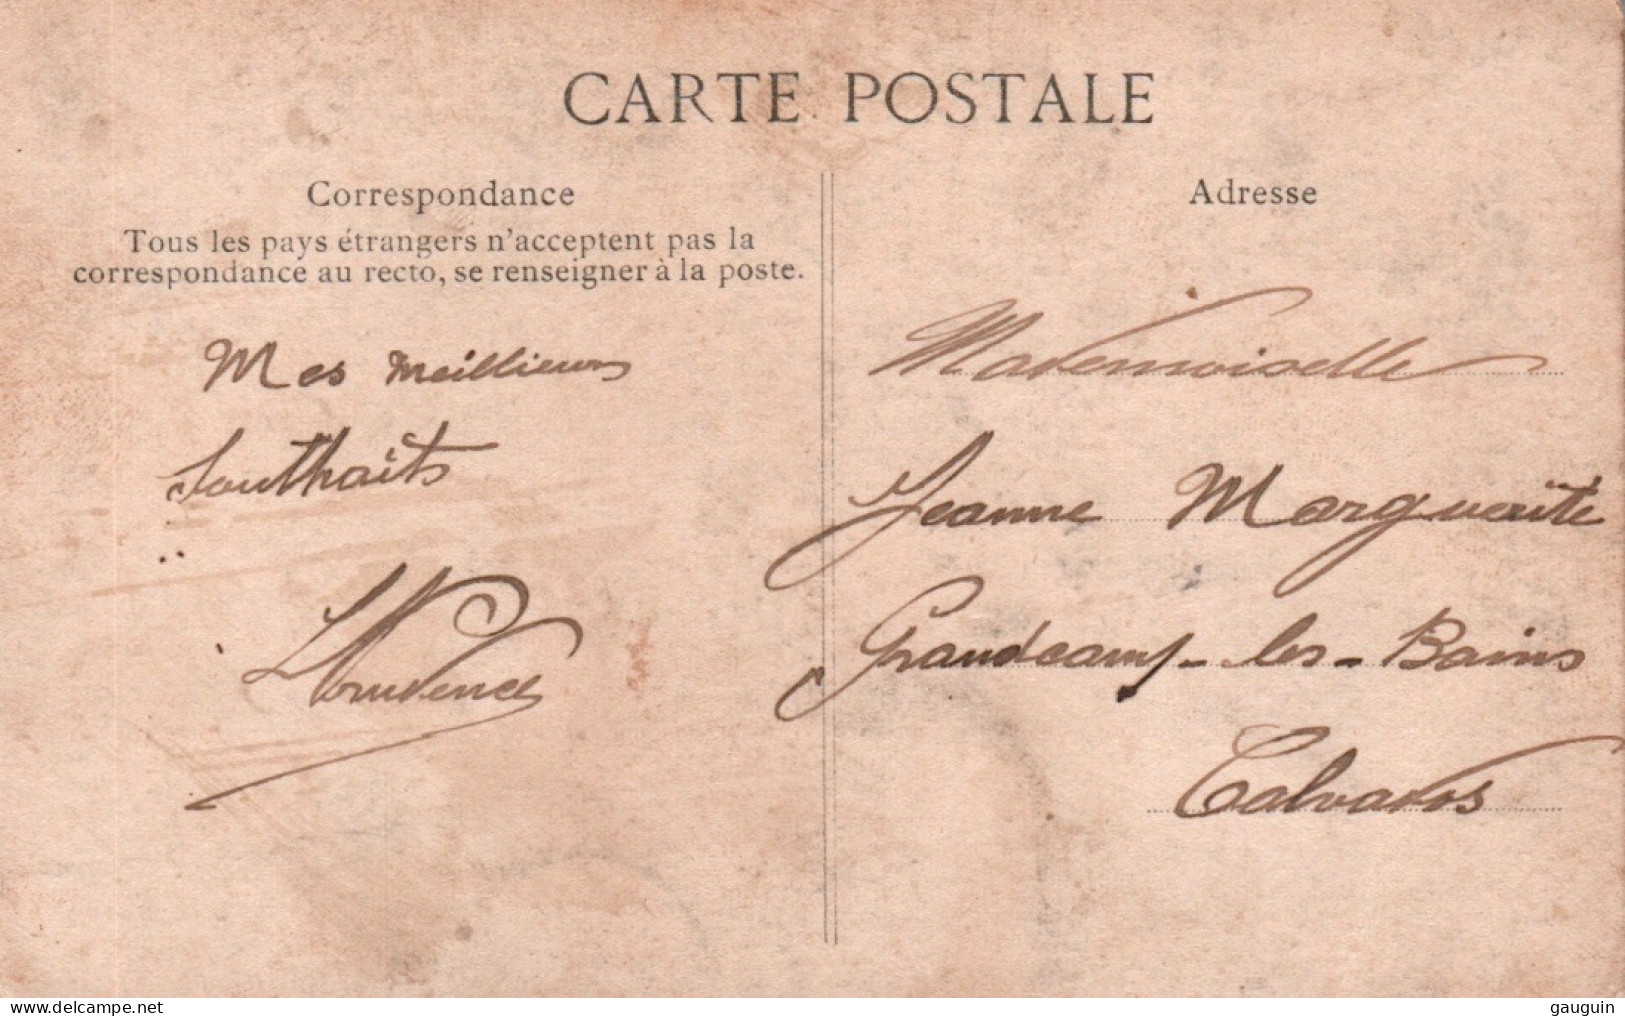 CARTE POSTALE
Correspondance
Tous les pays étrangers n'acceptent pas la
correspondance au recto, se renseigner à la poste.
Mes meillieurs
Southaits
Prudence
Adresse
Mademoiselle
Jeanne Marguerite
Grandcamp-les-Bains
Calvados
www.delcampe.net
gauguin